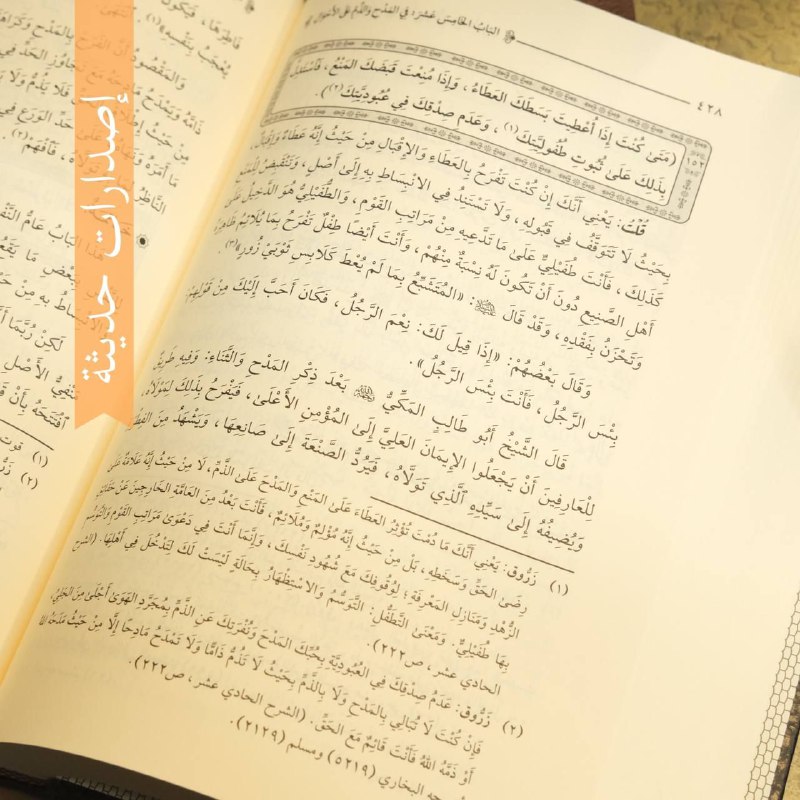 إصدارات حديثة
البَابُ الخَامِسَ عَشَرَ: في المَدْحِ وَالذَّمِّ عَلَى الأَحْوَالِ
٤٢٨
(مَتَى كُنْتَ إِذَا أُعْطِيتَ بَسَطَكَ العَطَاءُ، وَإِذَا مُنِعْتَ قَبَضَكَ المَنْعُ، فَاسْتَدِلَّ
١٥٢
بِذَلِكَ عَلَى ثُبُوتِ طُفُولِيَّتِكَ(١)، وَعَدَمِ صِدْقِكَ فِي عُبُودِيَّتِكَ(٢)).
قُلْتُ: يَعْنِي أَنَّكَ إِنْ كُنْتَ تَفْرَحُ بِالعَطَاءِ وَالإِقْبَالِ مِنْ حَيْثُ إِنَّهُ عَطَاءٌ وَإِقْبَالٌ،
بِحَيْثُ لَا تَتَوَقَّفُ فِي قَبُولِهِ، وَلَا تَسْتَنِدُ فِي الانْبِسَاطِ بِهِ إِلَى أَصْلٍ، وَتَنْقَبِضُ لِلْمَنْعِ
كَذَلِكَ، فَأَنْتَ طُفَيْلِيٌّ عَلَى مَا تَدَّعِيهِ مِنْ مَرَاتِبِ القَوْمِ، وَالطُّفَيْلِيُّ هُوَ الدَّخِيلُ عَلَى
أَهْلِ الصَّنِيعِ دُونَ أَنْ تَكُونَ لَهُ نِسْبَةٌ مِنْهُمْ، وَأَنْتَ أَيْضًا طِفْلٌ تَفْرَحُ بِمَا يُلَائِمُ ظَاهِرَهُ
وَتَحْزَنُ بِفَقْدِهِ، وَقَدْ قَالَ ﷺ: «المُتَشَبِّعُ بِمَا لَمْ يُعْطَ كَلَابِسِ ثَوْبَيْ زُورٍ»(٣).
وَقَالَ بَعْضُهُمْ: «إِذَا قِيلَ لَكَ: نِعْمَ الرَّجُلُ، فَكَانَ أَحَبَّ إِلَيْكَ مِنْ قَوْلِهِمْ:
بِئْسَ الرَّجُلُ، فَأَنْتَ بِئْسَ الرَّجُلُ».
قَالَ الشَّيْخُ أَبُو طَالِبٍ المَكِّيُّ بَعْدَ ذِكْرِ المَدْحِ وَالثَّنَاءِ: وَفِيهِ طَرِيقٌ
لِلْعَارِفِينَ أَنْ يَجْعَلُوا الإِيمَانَ العَلِيَّ إِلَى المُؤْمِنِ الأَعْلَى، فَيَفْرَحُ بِذَلِكَ لِمَوْلَاهُ،
وَيُضِيفُهُ إِلَى سَيِّدِهِ الَّذِي تَوَلَّاهُ، فَيَرُدُّ الصَّنْعَةَ إِلَى صَانِعِهَا، وَيَشْهَدُ مِنَ
(١) زَرُّوق: يَعْنِي أَنَّكَ مَا دُمْتَ تُؤْثِرُ العَطَاءَ عَلَى المَنْعِ وَالمَدْحَ عَلَى الذَّمِّ، لَا مِنْ حَيْثُ إِنَّهُ عَلَامَةٌ عَلَى
رِضَى الحَقِّ وَسَخَطِهِ، بَلْ مِنْ حَيْثُ إِنَّهُ مُؤْلِمٌ وَمُلَائِمٌ، فَأَنْتَ بَعْدُ مِنَ العَامَّةِ الخَارِجِينَ عَنْ حَقَائِقِ
الزُّهْدِ وَمَنَازِلِ المَعْرِفَةِ؛ لِوُقُوفِكَ مَعَ شُهُودِ نَفْسِكَ، وَإِنَّمَا أَنْتَ فِي دَعْوَى مَرَاتِبِ القَوْمِ وَالتَّوَسُّمِ
بِهَا طُفَيْلِيٌّ. وَمَعْنَى التَّطَفُّلِ: التَّوَسُّمُ وَالاسْتِظْهَارُ بِحَالَةٍ لَيْسَتْ لَكَ لِتَدْخُلَ فِي أَهْلِهَا. (الشرح
الحادي عشر، ص٢٢٢).
(٢) زَرُّوق: عَدَمُ صِدْقِكَ فِي العُبُودِيَّةِ بِحُبِّكَ المَدْحَ وَنُفْرَتِكَ عَنِ الذَّمِّ بِمُجَرَّدِ الهَوَى أَجْلَى مِنَ الجَلِيِّ،
فَإِنْ كُنْتَ لَا تُبَالِي بِالمَدْحِ وَلَا بِالذَّمِّ بِحَيْثُ لَا تَذُمُّ ذَامًّا وَلَا تَمْدَحُ مَادِحًا إِلَّا مِنْ حَيْثُ مَدَحَهُ اللهُ
أَوْ ذَمَّهُ اللهُ فَأَنْتَ قَائِمٌ مَعَ الحَقِّ. (الشرح الحادي عشر، ص٢٢٢).
البخاري (٥٢١٩) ومسلم (٢١٢٩).
يُعْجَبُ بِنَفْسِهِ»(١).
وَالمَقْصُودُ أَنَّ الفَرَحَ بِالمَدْحِ